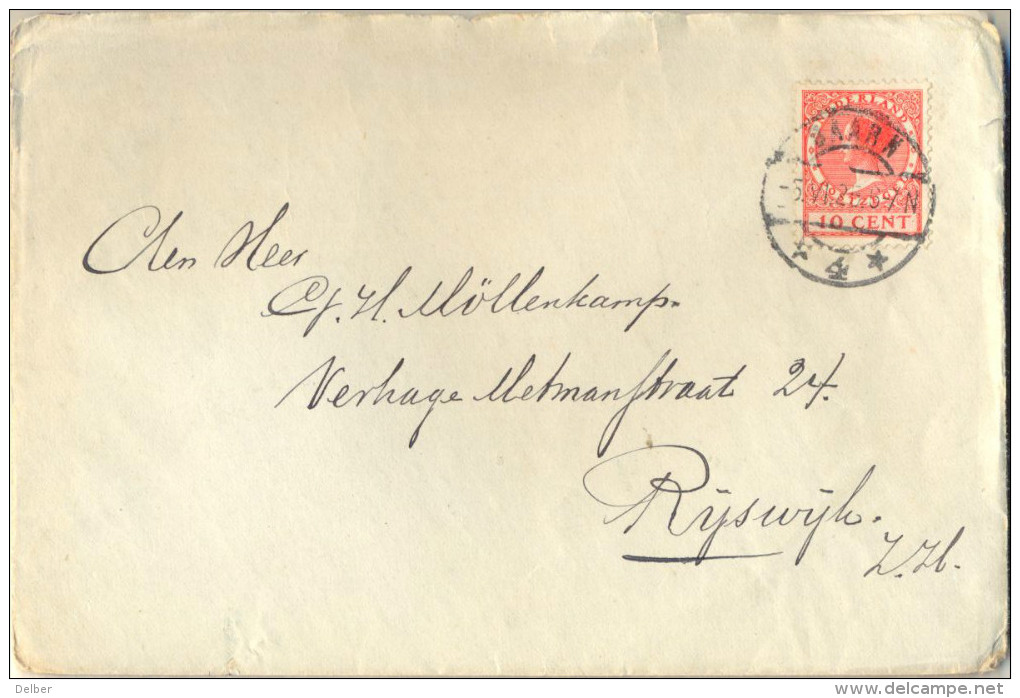 NEDERLAND
BAARN
10 CENT
* 4 *
Den Heer
H. Möllenkamp.
Verhage Metmanstraat 24.
Rijswijk.
Z.H.
Delber
delcampe.net